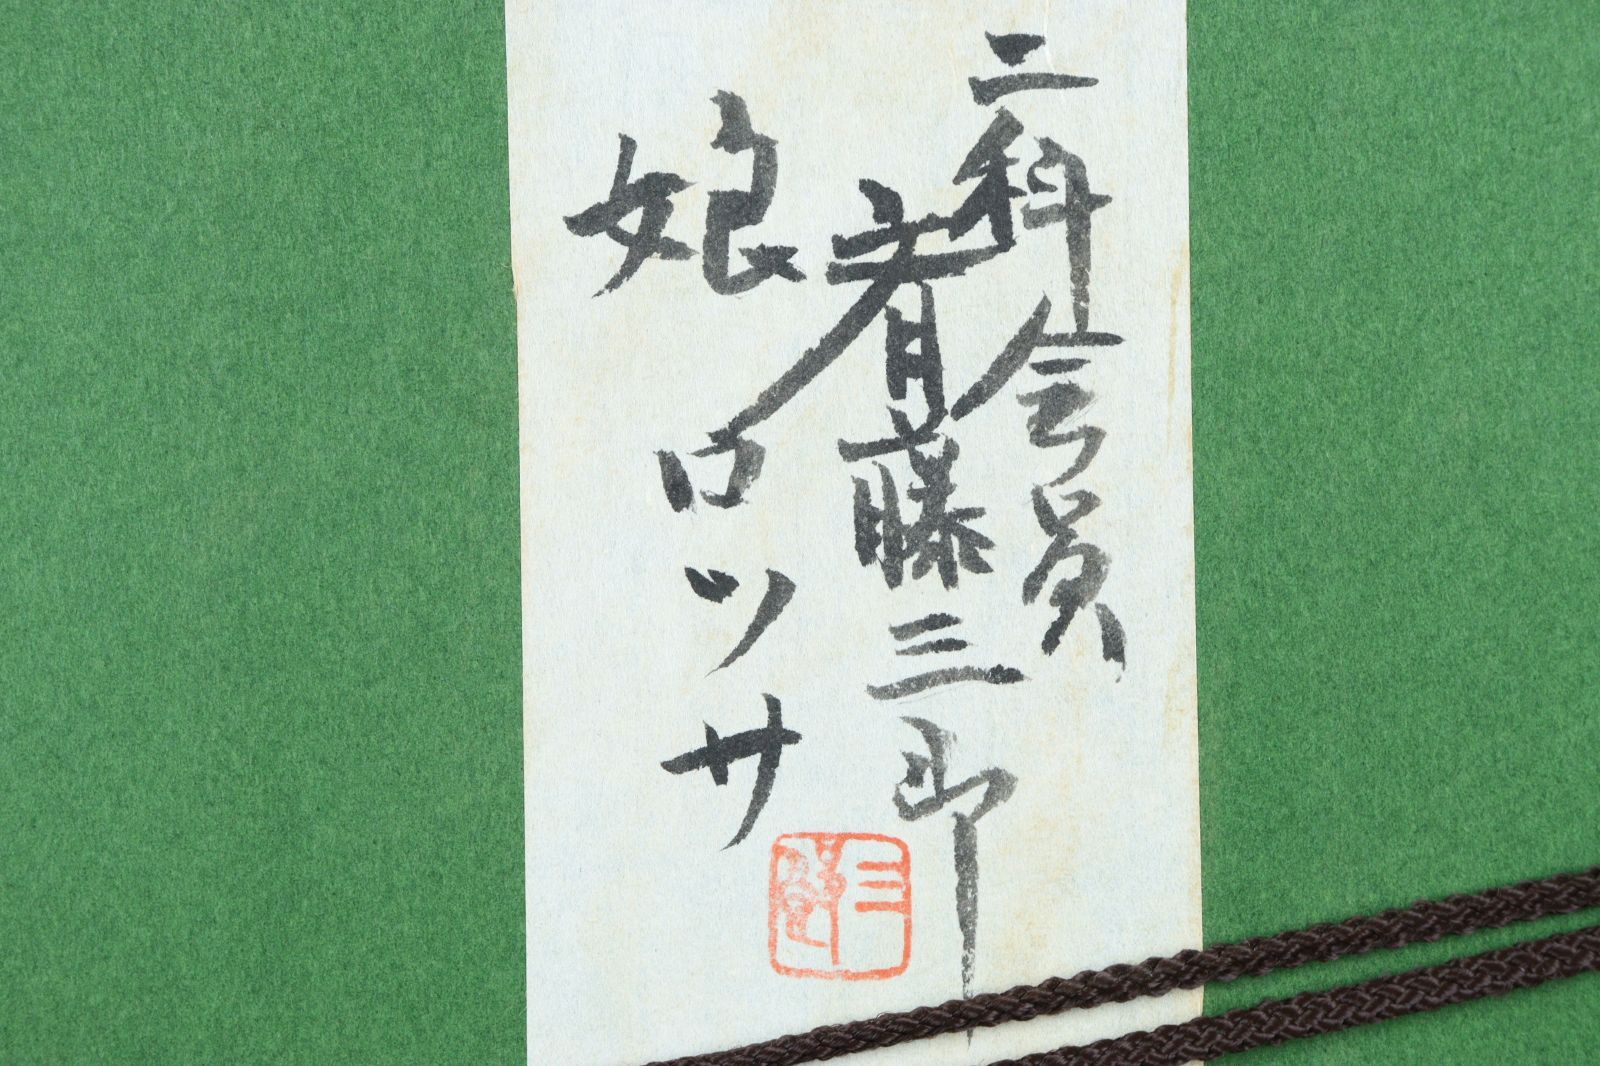 二科会員
斉藤三郎
娘ロツサ